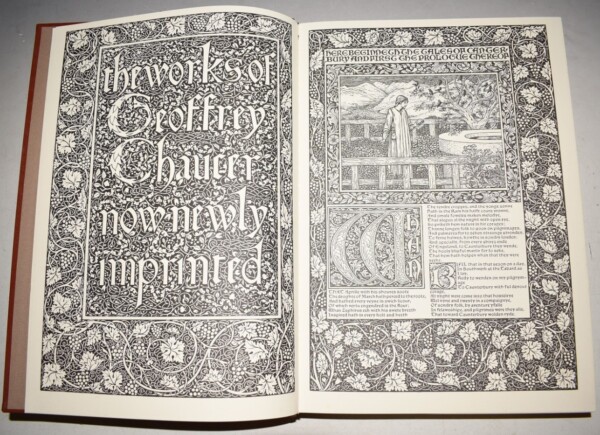 the works of
Geoffrey
Chaucer
now newly
imprinted
HERE BEGINNETH THE TALES OF CANTER-
BURY AND FIRST THE PROLOGUE THEREOF
WHAN
THAT Aprille with his shoures soote
The droghte of March hath perced to the roote,
And bathed every veyne in swich licour,
Of which vertu engendred is the flour;
Whan Zephirus eek with his swete breeth
Inspired hath in every holt and heeth
The tendre croppes, and the yonge sonne
Hath in the Ram his halfe cours yronne,
And smale foweles maken melodye,
That slepen al the nyght with open eye,
So priketh hem nature in hir corages;
Thanne longen folk to goon on pilgrimages,
And palmeres for to seken straunge strondes,
To ferne halwes, kowthe in sondry londes;
And specially, from every shires ende
Of Engelond, to Caunterbury they wende,
The hooly blisful martir for to seke,
That hem hath holpen whan that they were
seeke.
BIFIL that in that seson on a day,
In Southwerk at the Tabard as
I lay,
Redy to wenden on my pilgrymage
To Caunterbury with ful devout
corage,
At nyght were come into that hostelrye
Wel nyne and twenty in a compaignye,
Of sondry folk, by aventure yfalle
In felaweshipe, and pilgrimes were they alle,
That toward Caunterbury wolden ryde.